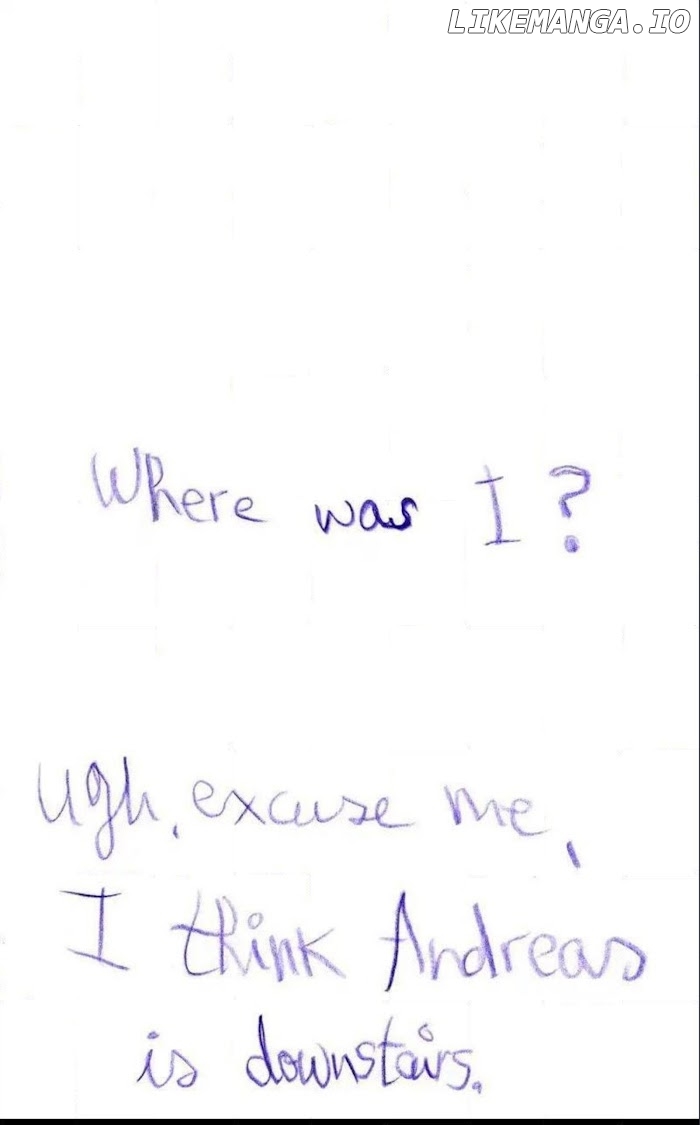 LIKEMANGA.IO
Where was I?
Ugh, excuse me,
I think Andreas
is downstairs.